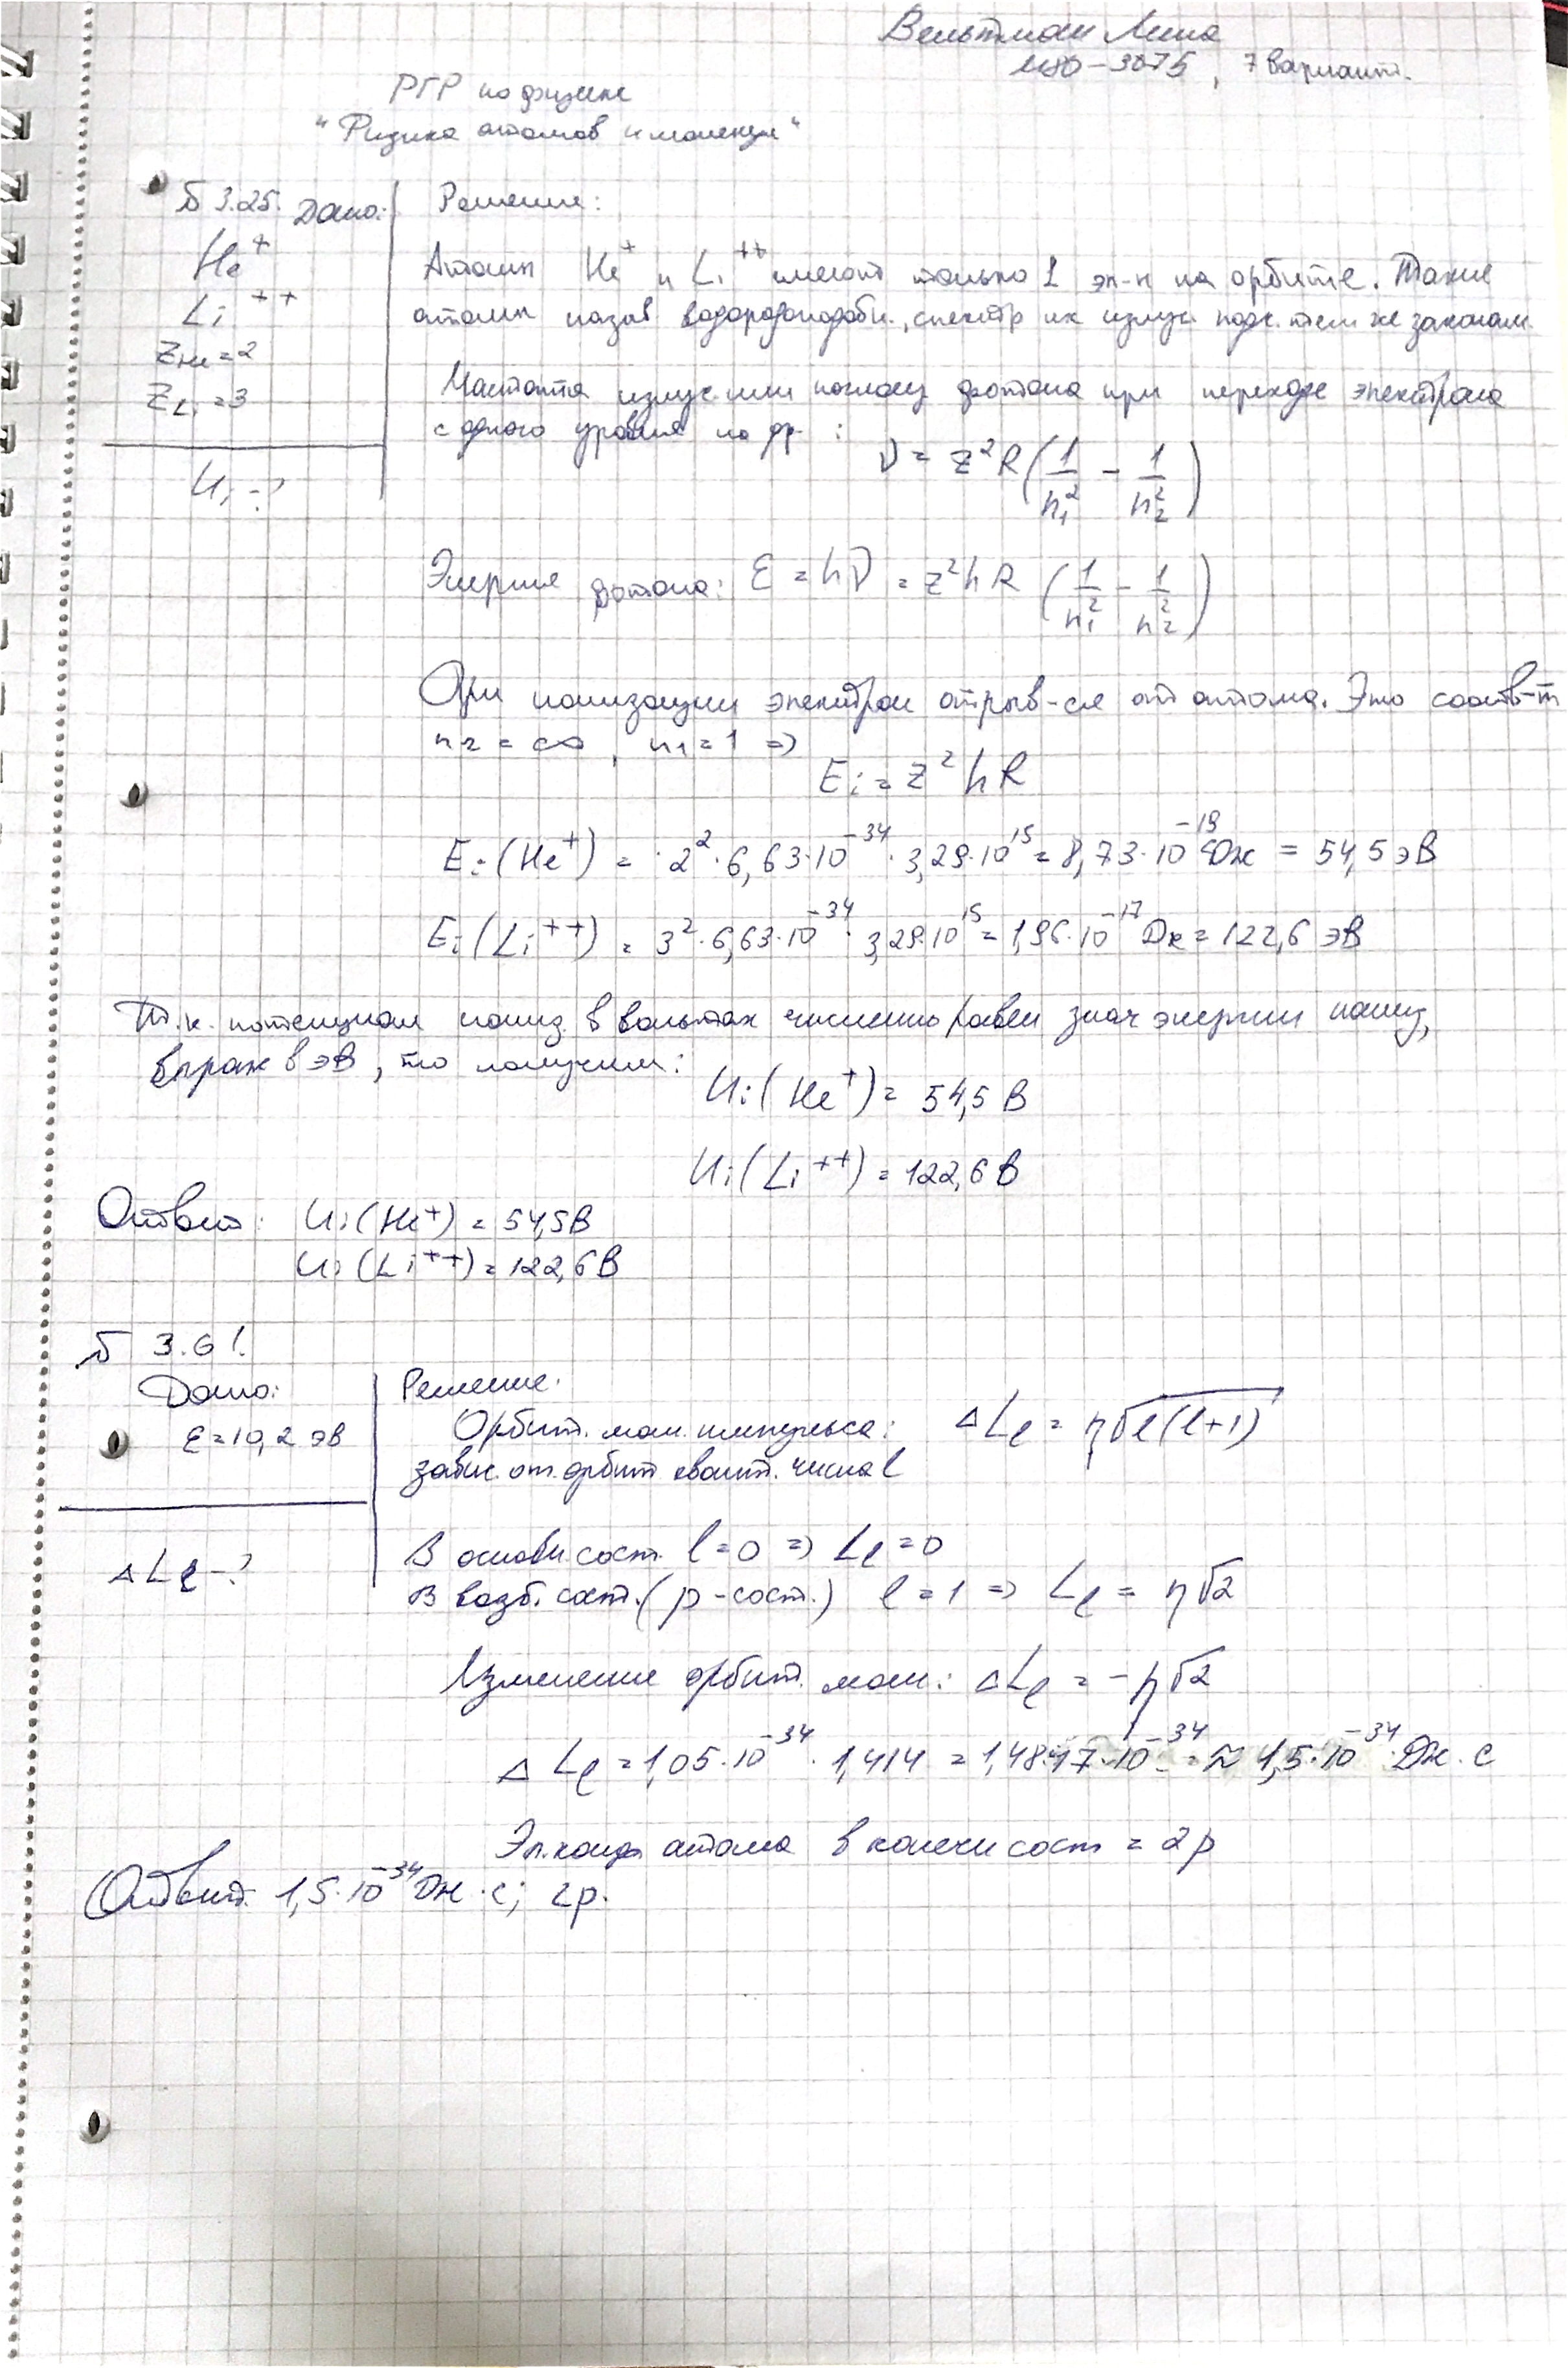 Вельтман Лина
М8О-307Б, 7 вариант.
РГР по физике
"Физика атомов и молекул"
№ 3.25. Дано:
He⁺
Li⁺⁺
Z_He = 2
Z_Li = 3
U_i - ?
Решение:
Атомы He⁺ и Li⁺⁺ имеют только 1 эл-н на орбите. Такие
атомы назыв водородоподобн., спектр их излуч подч. тем же законам.
Частота излуч. или поглощ фотона при переходе электрона
с одного уровня на др. :
ν = Z²R(1/n₁² - 1/n₂²)
Энергия фотона: ε = hν = Z²hR (1/n₁² - 1/n₂²)
При ионизации электрон отрыв-ся от атома. Это соотв-т
n₂ = ∞ , n₁ = 1 ⇒
E_i = Z²hR
E_i(He⁺) = 2²·6,63·10⁻³⁴·3,29·10¹⁵ = 8,73·10⁻¹⁹ Дж = 54,5 эВ
E_i(Li⁺⁺) = 3²·6,63·10⁻³⁴·3,29·10¹⁵ = 1,96·10⁻¹⁷ Дж = 122,6 эВ
Т.к. потенциал иониз. в вольтах численно равен знач энергии иониз,
выраж в эВ, то получим:
U_i(He⁺) = 54,5 В
U_i(Li⁺⁺) = 122,6 В
Ответ: U_i(He⁺) = 54,5 В
U_i(Li⁺⁺) = 122,6 В
№ 3.61.
Дано:
ε = 10,2 эВ
ΔL_l - ?
Решение:
Орбит. мом. импульса: ΔL_l = ħ√l(l+1)
завис. от орбит квант. числа l
В основн. сост. l = 0 ⇒ L_l = 0
В возб. сост. (p-сост.) l = 1 ⇒ L_l = ħ√2
Изменение орбит. мом: ΔL_l = -ħ√2
ΔL_l = 1,05·10⁻³⁴ · 1,414 = 1,4847·10⁻³⁴ = ≈ 1,5·10⁻³⁴ Дж·с
Эл. конф атома в конечн сост = 2p
Ответ. 1,5·10⁻³⁴ Дж·с; 2p.